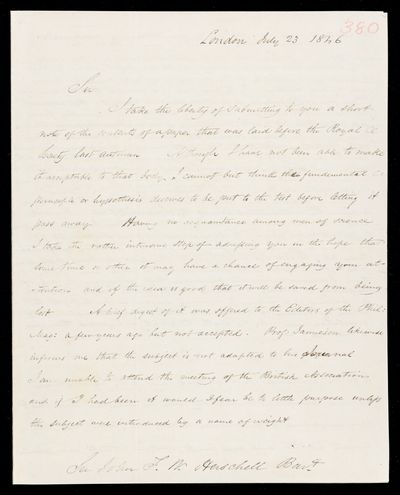 380
London July 23 1846
Sir
I take the liberty of submitting to you a short
note of the contents of a paper that was laid before the Royal
Society last autumn Although I have not been able to make
it acceptable to that body, I cannot but think the fundamental
principle or hypothesis deserves to be put to the test before letting it
pass away. Having no acquaintance among men of science
I take the rather intrusive step of addressing you in the hope that
some time or other it may have a chance of engaging your at-
tention and if the idea is good that it will be saved from being
lost A brief digest of it was offered to the Editors of the Phil:
Mag: a few years ago but not accepted. Prof: Jameson likewise
informs me that the subject is not adapted to his Journal
I am unable to attend the meeting of the British Association
and if I had been it would I fear be to little purpose unless
the subject were introduced by a name of weight
Sir John F. W. Herschell Bart